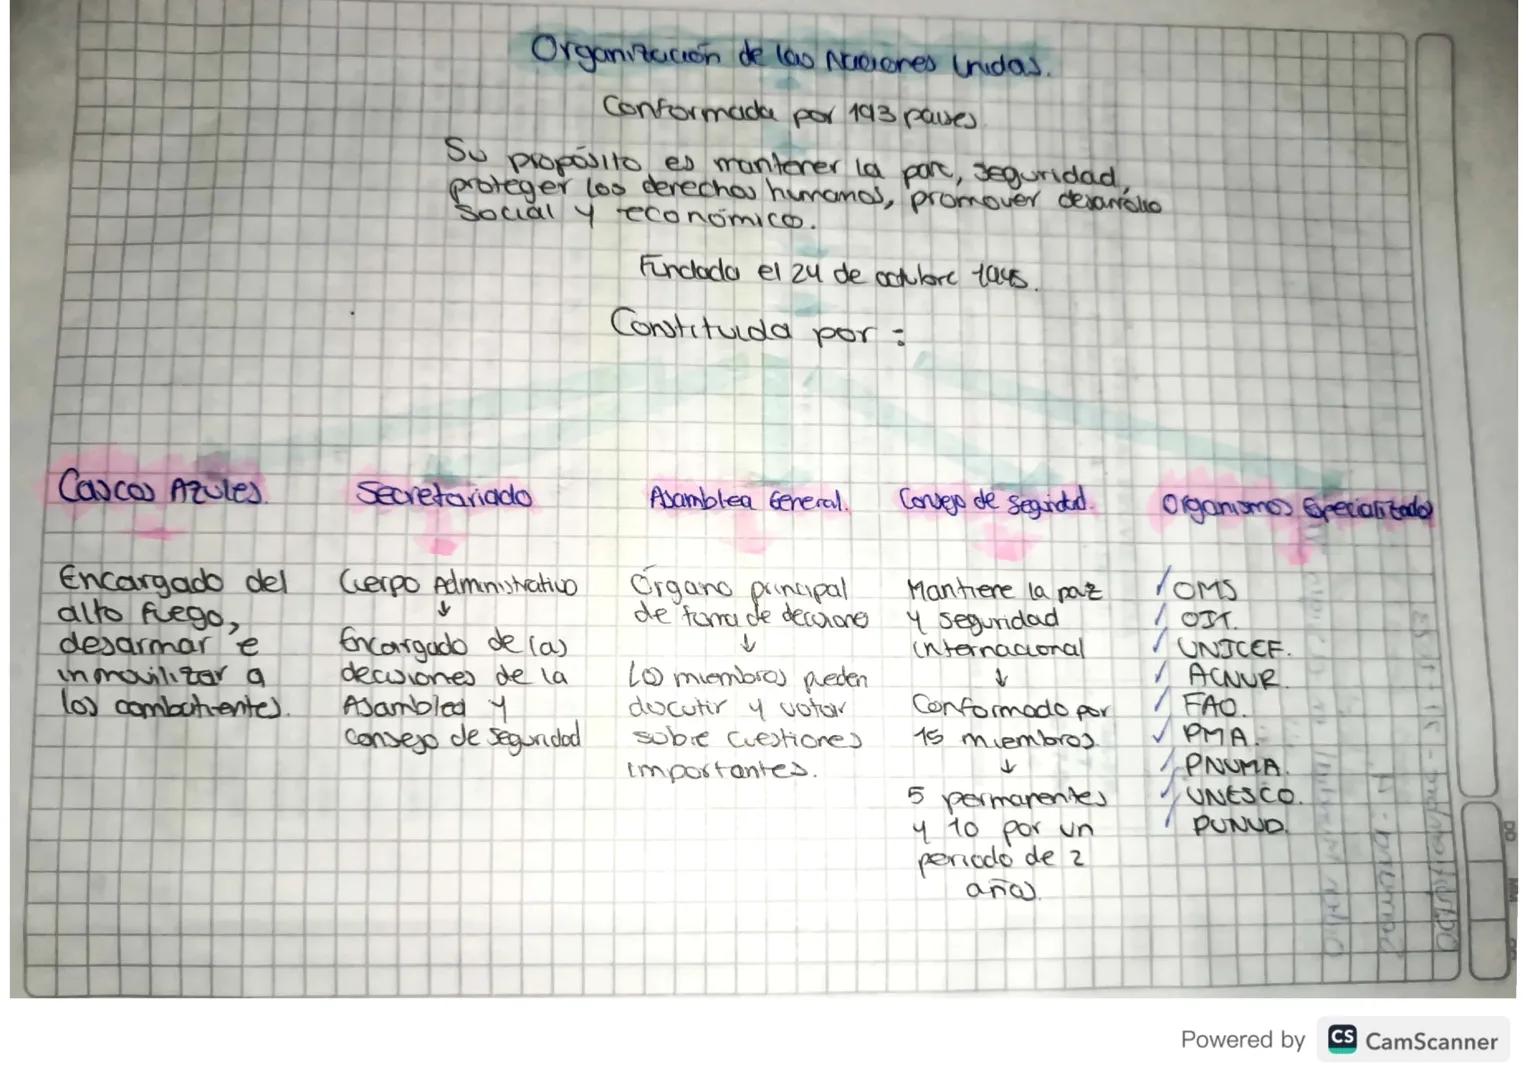 Organización de las Naciones Unidas.
Conformada por 193 países
Su propósito es mantener la paz, seguridad,
proteger los derechos humanos, promover desarrollo
social y económico.
Fundada el 24 de octubre 1945.
Constituida por :
Cascos Azules.
Encargado del
alto fuego,
desarmar e
inmovilizar a
los combatientes.
Secretariado
Cuerpo Administrativo
↓
Encargado de las
decisiones de la
Asamblea y
Consejo de Seguridad
Asamblea General.
Órgano principal
de toma de decisiones
↓
Los miembros pueden
discutir y votar
sobre cuestiones
importantes.
Consejo de Seguridad.
Mantiene la paz
y seguridad
internacional
↓
Conformado por
15 miembros.
↓
5 permanentes
y 10 por un
periodo de 2
años.
Organismos Especializados
✓ OMS
✓ OIT.
✓ UNICEF.
✓ ACNUR.
✓ FAO.
✓ PMA.
✓ PNUMA.
✓ UNESCO.
✓ PUNUD.
Powered by CS CamScanner